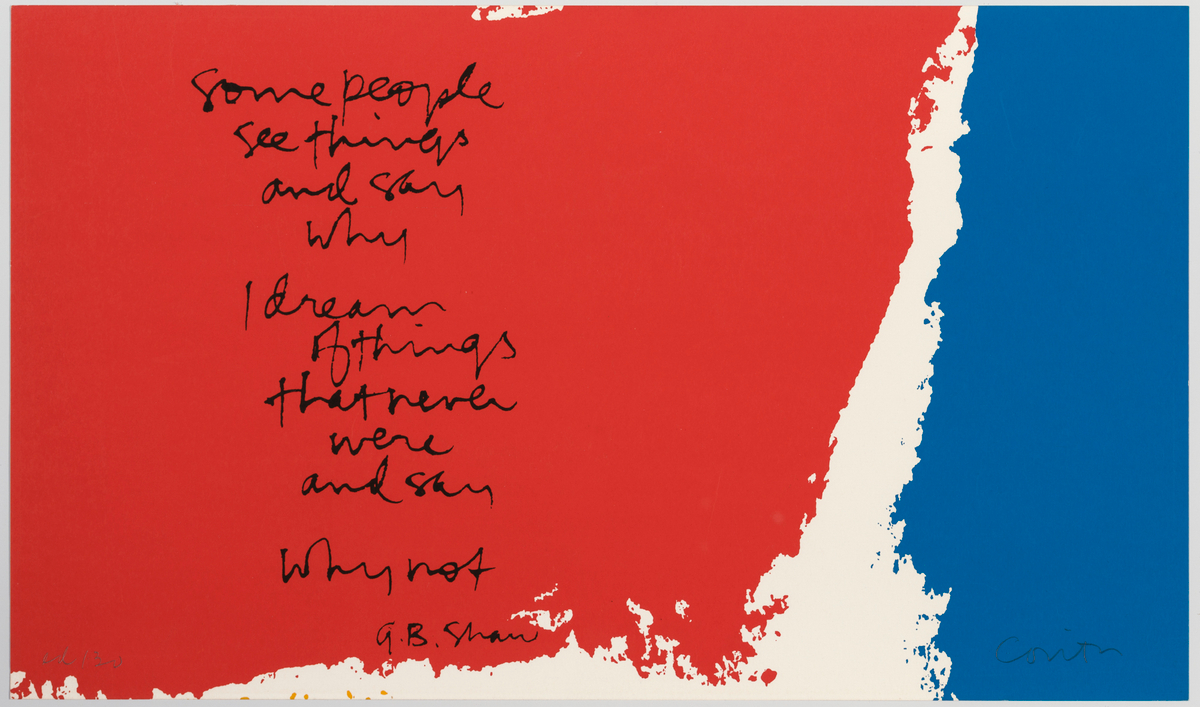 some people
see things
and say
why
I dream
of things
that never
were
and say
why not
G.B. Shaw
Corita